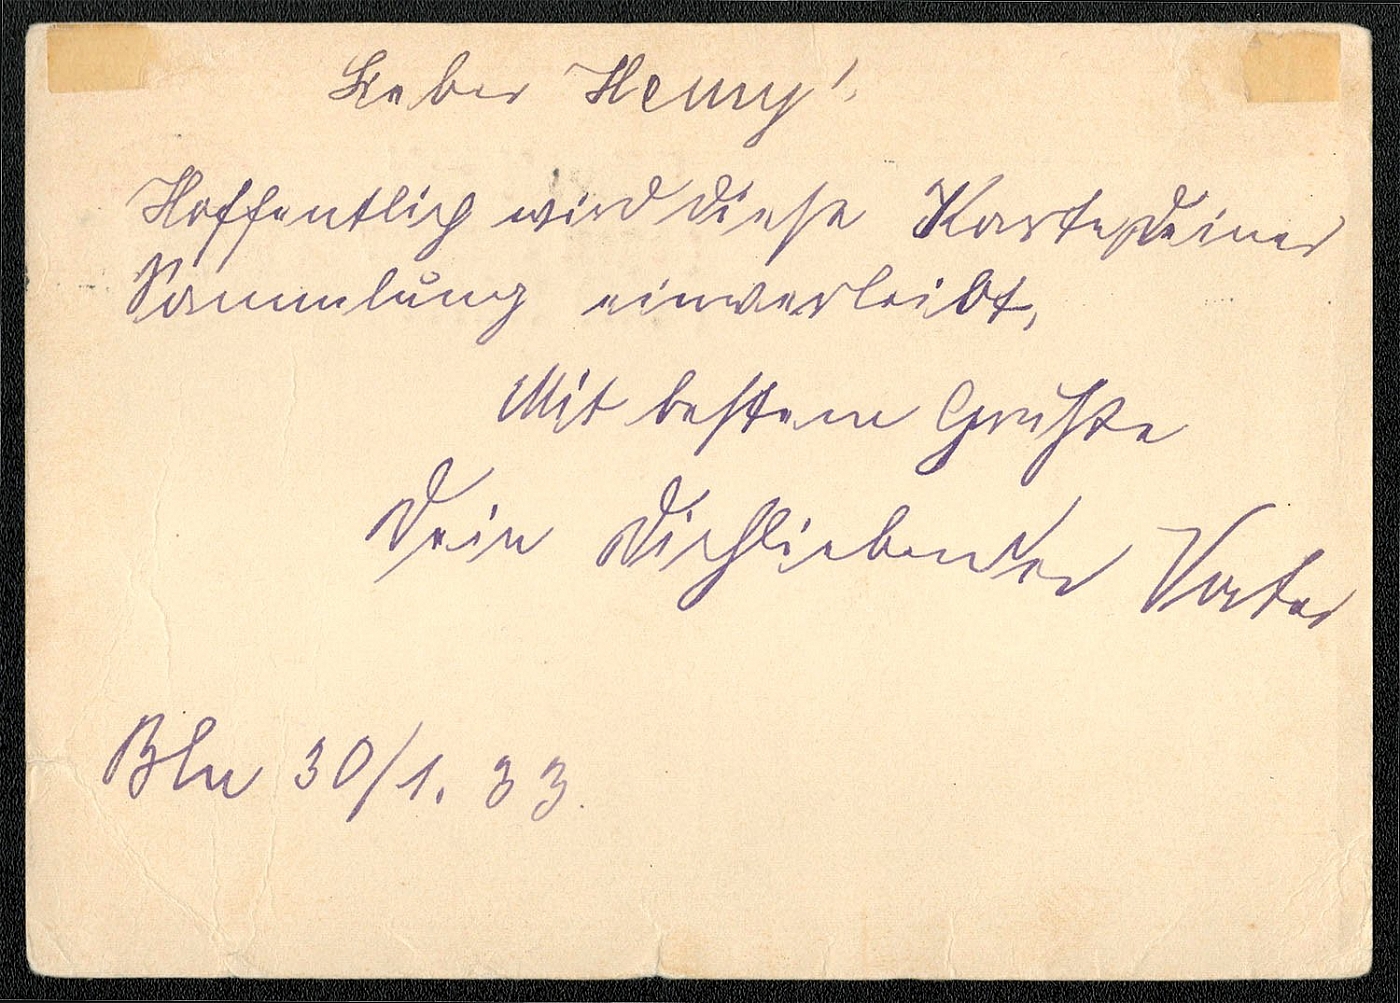 Lieber Henry!
Hoffentlich wird diese Karte Deiner
Sammlung einverleibt,
Mit bestem Gruße
Dein Dichliebender Vater
Bln 30/1. 33.